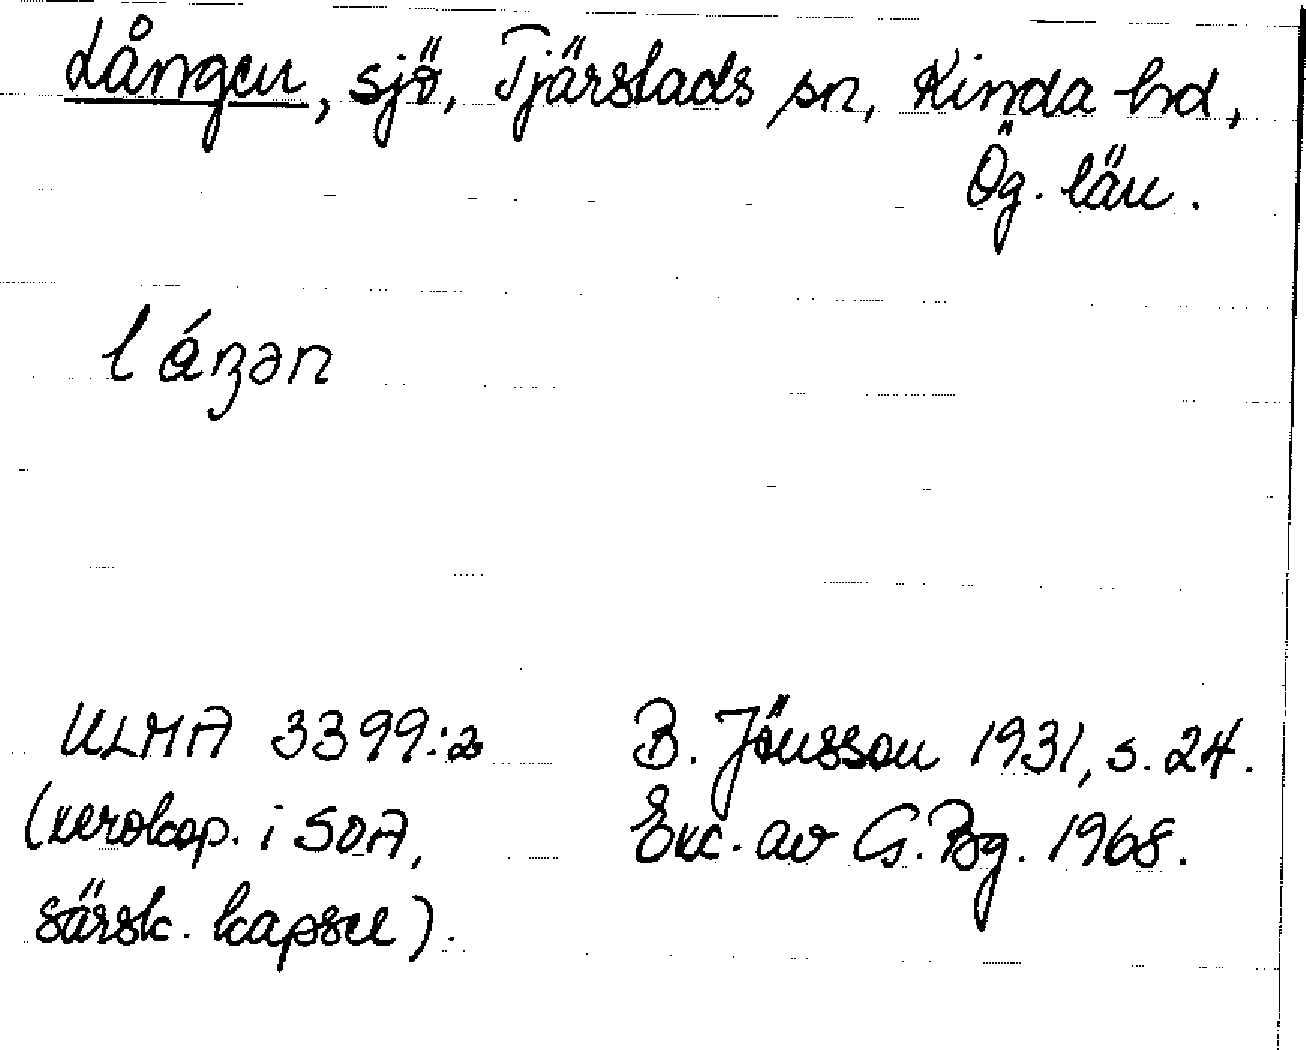 Lången, sjö, Tjärstads sn, Kinda hd,
Ög. län.
lá̊ŋən
ULMA 3399:2
(xerokop. i SOA,
särsk. kapsel).
B. Jönsson 1931, s. 24.
Exc. av G. Bg. 1968.